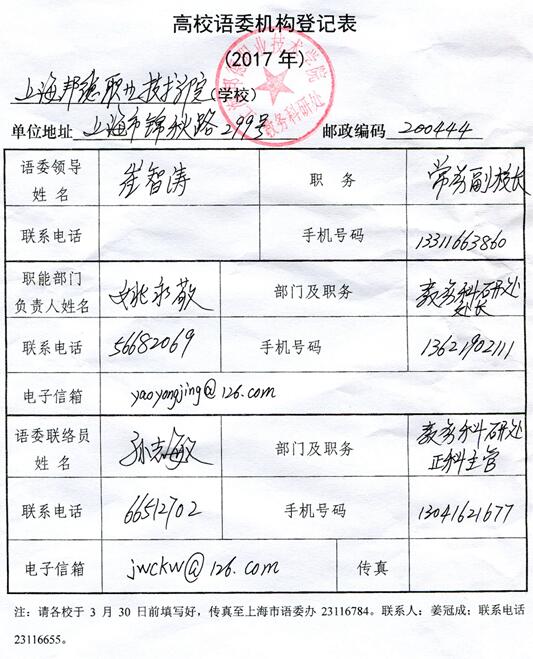 高校语委机构登记表
(2017 年)
上海邦德职业技术学院 (学校)
单位地址 上海市锦秋路299号 邮政编码 200444
语委领导姓名 崔智涛 职 务 常务副校长
联系电话 手机号码 13311663860
职能部门负责人姓名 姚永敬 部门及职务 教务科研处处长
联系电话 56682069 手机号码 13621902111
电子信箱 yaoyongjing@126.com
语委联络员姓 名 孙志敏 部门及职务 教务科研处正科主管
联系电话 66512702 手机号码 13041621677
电子信箱 jwckw@126.com 传真
注：请各校于 3 月 30 日前填写好，传真至上海市语委办 23116784。联系人：姜冠成；联系电话
23116655。